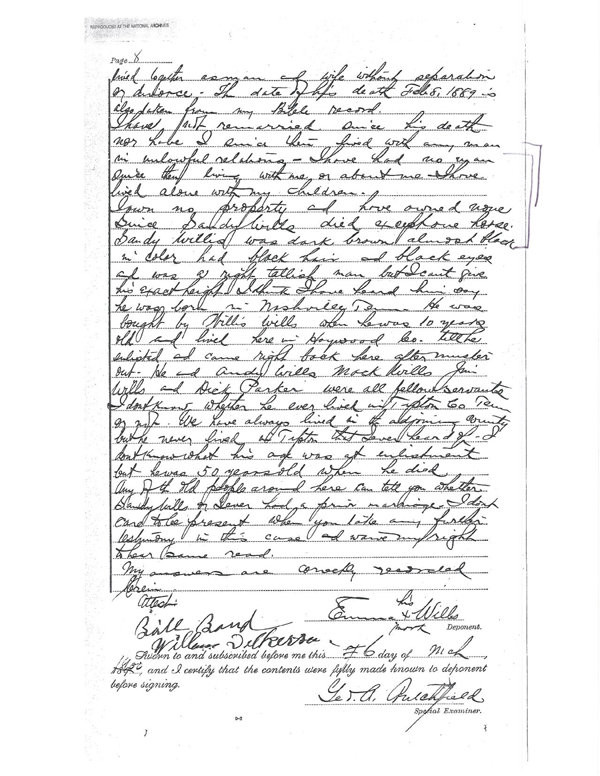 REPRODUCED AT THE NATIONAL ARCHIVES
Page 8
lived together as man and wife without separation
or divorce - The date of his death Feb 8, 1889 is
also taken from my Bible record.
I have not remarried since his death
nor have I since then lived with any man
in unlawful relations - I have had no man
since then living with me or about me I have
lived alone with my children.
I own no property and have owned none
since Sandy Wills died except one horse.
Sandy Wills was dark brown almost black
in color had black hair and black eyes
and was a right tallish man but I cant give
his exact height I think I have heard him say
he was born in Nashville, Tenn He was
bought by Willis Wills when he was 10 years
old and lived here in Haywood Co. till he
enlisted and came right back here after muster
out. He and Andy Wills Mack Wills Jim
Wills and Dick Parker were all fellow servants
I dont know whether he ever lived in Tipton Co Tenn
or not. We have always lived in the adjoining County
but he never lived in Tipton that I ever heard of - I
dont know what his age was at enlistment
but he was 50 years old when he died
Any of the old people around here can tell you whether
Sandy Wills or I ever had a prior marriage. I dont
care to be present when you take any further
testimony in this case and waive my right
to hear same read.
My answers are correctly recorded
herein
Attest
his
Emma x Wills
mark
Deponent.
Bill Bond
Sworn to and subscribed before me this 6 day of Mch
, and I certify that the contents were fully made known to deponent
before signing.
Geo. A.
Special Examiner.